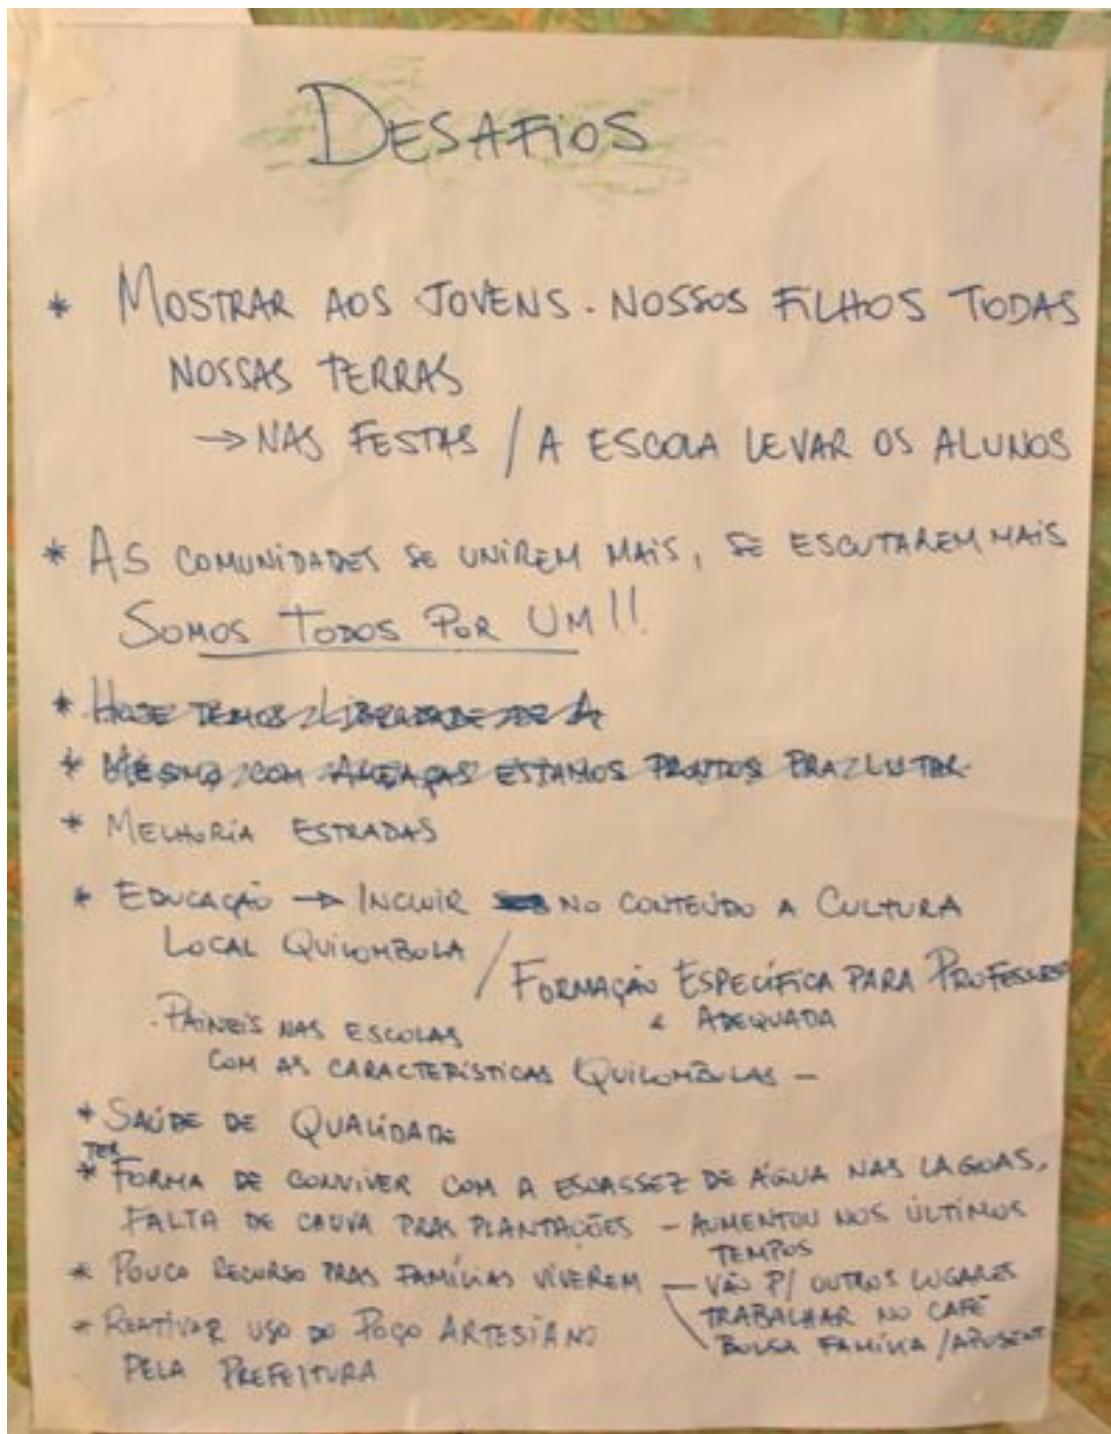 DESAFIOS
* MOSTRAR AOS JOVENS. NOSSOS FILHOS TODAS
NOSSAS TERRAS
→ NAS FESTAS / A ESCOLA LEVAR OS ALUNOS
* AS COMUNIDADES SE UNIREM MAIS, SE ESCUTAREM MAIS
SOMOS TODOS POR UM!!
* HOJE TEMOS LIBERDADE DE A
* MESMO COM AMEAÇAS ESTAMOS PRONTOS PRA LUTAR
* MELHORIA ESTRADAS
* EDUCAÇÃO → INCLUIR NO CONTEÚDO A CULTURA
LOCAL QUILOMBOLA
/ FORMAÇÃO ESPECÍFICA PARA PROFESSORES
& ADEQUADA
. PAINEIS NAS ESCOLAS
COM AS CARACTERÍSTICAS QUILOMBOLAS —
* SAÚDE DE QUALIDADE
TER
* FORMA DE CONVIVER COM A ESCASSEZ DE ÁGUA NAS LAGOAS.
FALTA DE CHUVA PRAS PLANTAÇÕES – AUMENTOU NOS ÚLTIMOS
TEMPOS
* POUCO RECURSO PRAS FAMÍLIAS VIVEREM — VÃO P/ OUTROS LUGARES
TRABALHAR NO CAFÉ
BOLSA FAMÍLIA / APOSENT
* REATIVAR USO DO POÇO ARTESIANO
PELA PREFEITURA